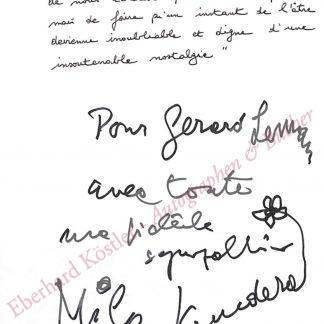 de nous
mais de faire qu'un instant de l'être
devienne inoubliable et digne d'une
insoutenable nostalgie "
Pour Gerard
avec toute
ma fidèle
Milan Kundera
Eberhard Köstler Autographen & Bücher